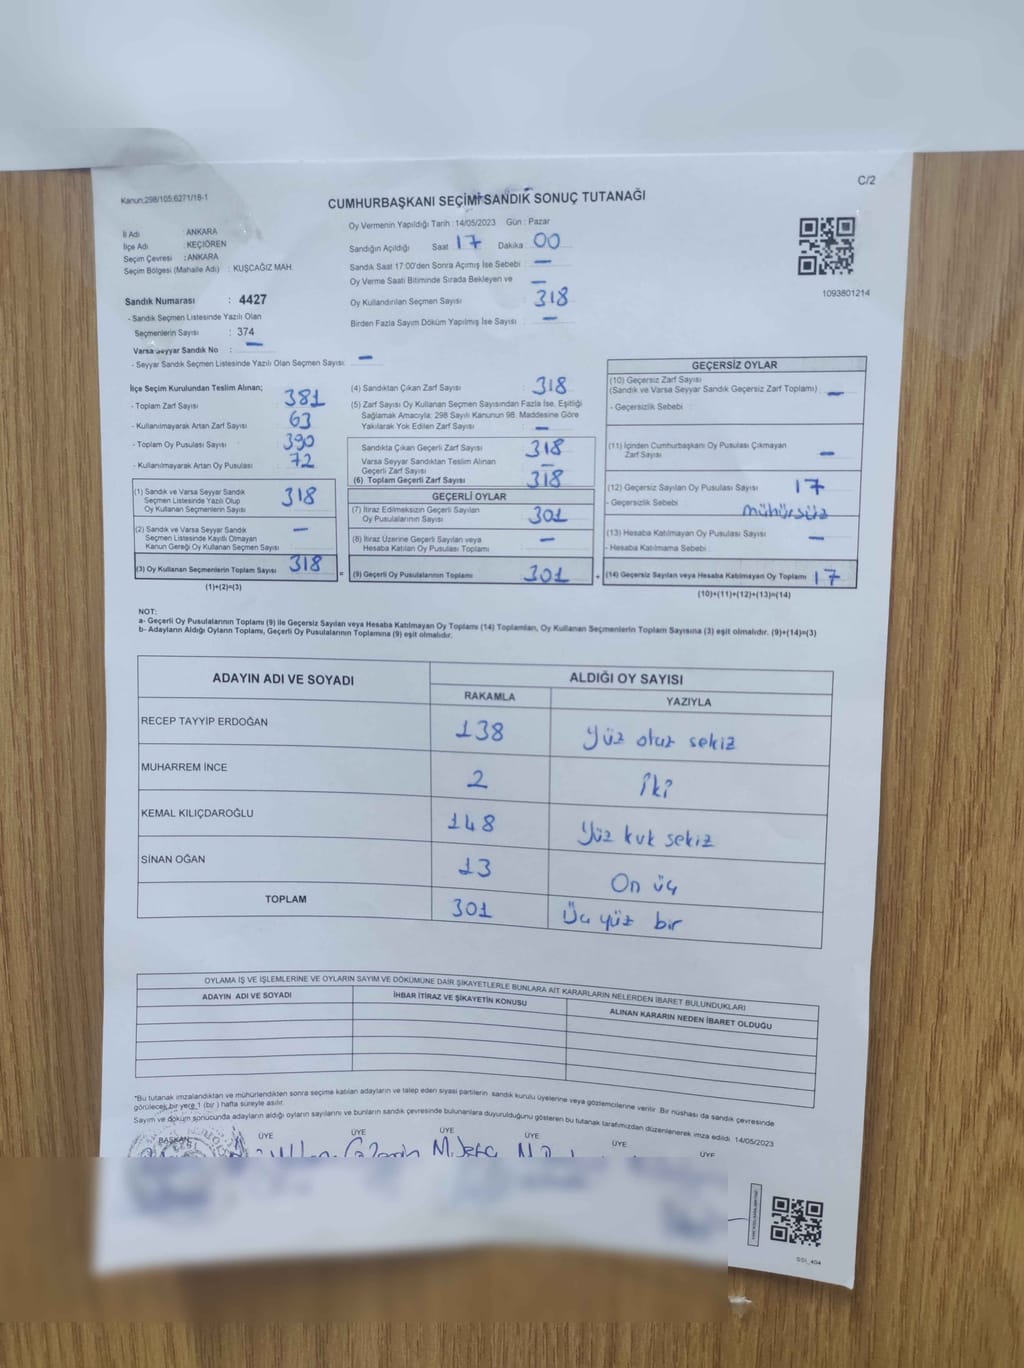 C/2
Kanun:298/105;6271/18-1
CUMHURBAŞKANI SEÇİMİ SANDIK SONUÇ TUTANAĞI
İl Adı : ANKARA
İlçe Adı : KEÇİÖREN
Seçim Çevresi : ANKARA
Seçim Bölgesi (Mahalle Adı) : KUŞCAĞIZ MAH.
Sandık Numarası : 4427
- Sandık Seçmen Listesinde Yazılı Olan
Seçmenlerin Sayısı : 374
Varsa Seyyar Sandık No : —
- Seyyar Sandık Seçmen Listesinde Yazılı Olan Seçmen Sayısı: —
Oy Vermenin Yapıldığı Tarih : 14/05/2023 Gün : Pazar
Sandığın Açıldığı Saat 17 Dakika 00
Sandık Saat 17:00'den Sonra Açımış İse Sebebi : —
Oy Verme Saati Bitiminde Sırada Bekleyen ve —
Oy Kullandırılan Seçmen Sayısı 318
Birden Fazla Sayım Döküm Yapılmış İse Sayısı : —
1093801214
İlçe Seçim Kurulundan Teslim Alınan;
- Toplam Zarf Sayısı 381
- Kullanılmayarak Artan Zarf Sayısı 63
- Toplam Oy Pusulası Sayısı 390
- Kullanılmayarak Artan Oy Pusulası 72
(1) Sandık ve Varsa Seyyar Sandık
Seçmen Listesinde Yazılı Olup
Oy Kullanan Seçmenlerin Sayısı 318
(2) Sandık ve Varsa Seyyar Sandık
Seçmen Listesinde Kayıtlı Olmayan
Kanun Gereği Oy Kullanan Seçmen Sayısı —
(3) Oy Kullanan Seçmenlerin Toplam Sayısı 318
(1)+(2)=(3)
(4) Sandıktan Çıkan Zarf Sayısı 318
(5) Zarf Sayısı Oy Kullanan Seçmen Sayısından Fazla İse, Eşitliği
Sağlamak Amacıyla; 298 Sayılı Kanunun 98. Maddesine Göre
Yakılarak Yok Edilen Zarf Sayısı : —
Sandıkta Çıkan Geçerli Zarf Sayısı 318
Varsa Seyyar Sandıktan Teslim Alınan
Geçerli Zarf Sayısı —
(6) Toplam Geçerli Zarf Sayısı 318
GEÇERLİ OYLAR
(7) İtiraz Edilmeksizin Geçerli Sayılan
Oy Pusulalarının Sayısı 301
(8) İtiraz Üzerine Geçerli Sayılan veya
Hesaba Katılan Oy Pusulası Toplamı —
= (9) Geçerli Oy Pusulalarının Toplamı 301 +
GEÇERSİZ OYLAR
(10) Geçersiz Zarf Sayısı
(Sandık ve Varsa Seyyar Sandık Geçersiz Zarf Toplamı) : —
- Geçersizlik Sebebi :
(11) İçinden Cumhurbaşkanı Oy Pusulası Çıkmayan
Zarf Sayısı —
(12) Geçersiz Sayılan Oy Pusulası Sayısı 17
- Geçersizlik Sebebi : mühürsüz
(13) Hesaba Katılmayan Oy Pusulası Sayısı —
- Hesaba Katılmama Sebebi :
(14) Geçersiz Sayılan veya Hesaba Katılmayan Oy Toplamı 17
(10)+(11)+(12)+(13)=(14)
NOT:
a- Geçerli Oy Pusulalarının Toplamı (9) ile Geçersiz Sayılan veya Hesaba Katılmayan Oy Toplamı (14) Toplamları, Oy Kullanan Seçmenlerin Toplam Sayısına (3) eşit olmalıdır. (9)+(14)=(3)
b- Adayların Aldığı Oyların Toplamı, Geçerli Oy Pusulalarının Toplamına (9) eşit olmalıdır.
ADAYIN ADI VE SOYADI ALDIĞI OY SAYISI
RAKAMLA YAZIYLA
RECEP TAYYİP ERDOĞAN 138 Yüz otuz sekiz
MUHARREM İNCE 2 İki
KEMAL KILIÇDAROĞLU 148 Yüz kırk sekiz
SİNAN OĞAN 13 On üç
TOPLAM 301 Üç yüz bir
OYLAMA İŞ VE İŞLEMLERİNE VE OYLARIN SAYIM VE DÖKÜMÜNE DAİR ŞİKAYETLERLE BUNLARA AİT KARARLARIN NELERDEN İBARET BULUNDUKLARI
ADAYIN ADI VE SOYADI İHBAR İTİRAZ VE ŞİKAYETİN KONUSU ALINAN KARARIN NEDEN İBARET OLDUĞU
*Bu tutanak imzalandıktan ve mühürlendikten sonra seçime katılan adayların ve talep eden siyasi partilerin sandık kurulu üyelerine veya gözlemcilerine verilir. Bir nüshası da sandık çevresinde
görülecek bir yere 1 (bir) hafta süreyle asılır.
Sayım ve döküm sonucunda adayların aldığı oyların sayılarını ve bunların sandık çevresinde bulunanlara duyurulduğunu gösteren bu tutanak taraftımızdan düzenlenerek imza edildi. 14/05/2023
BAŞKAN ÜYE ÜYE ÜYE ÜYE ÜYE ÜYE